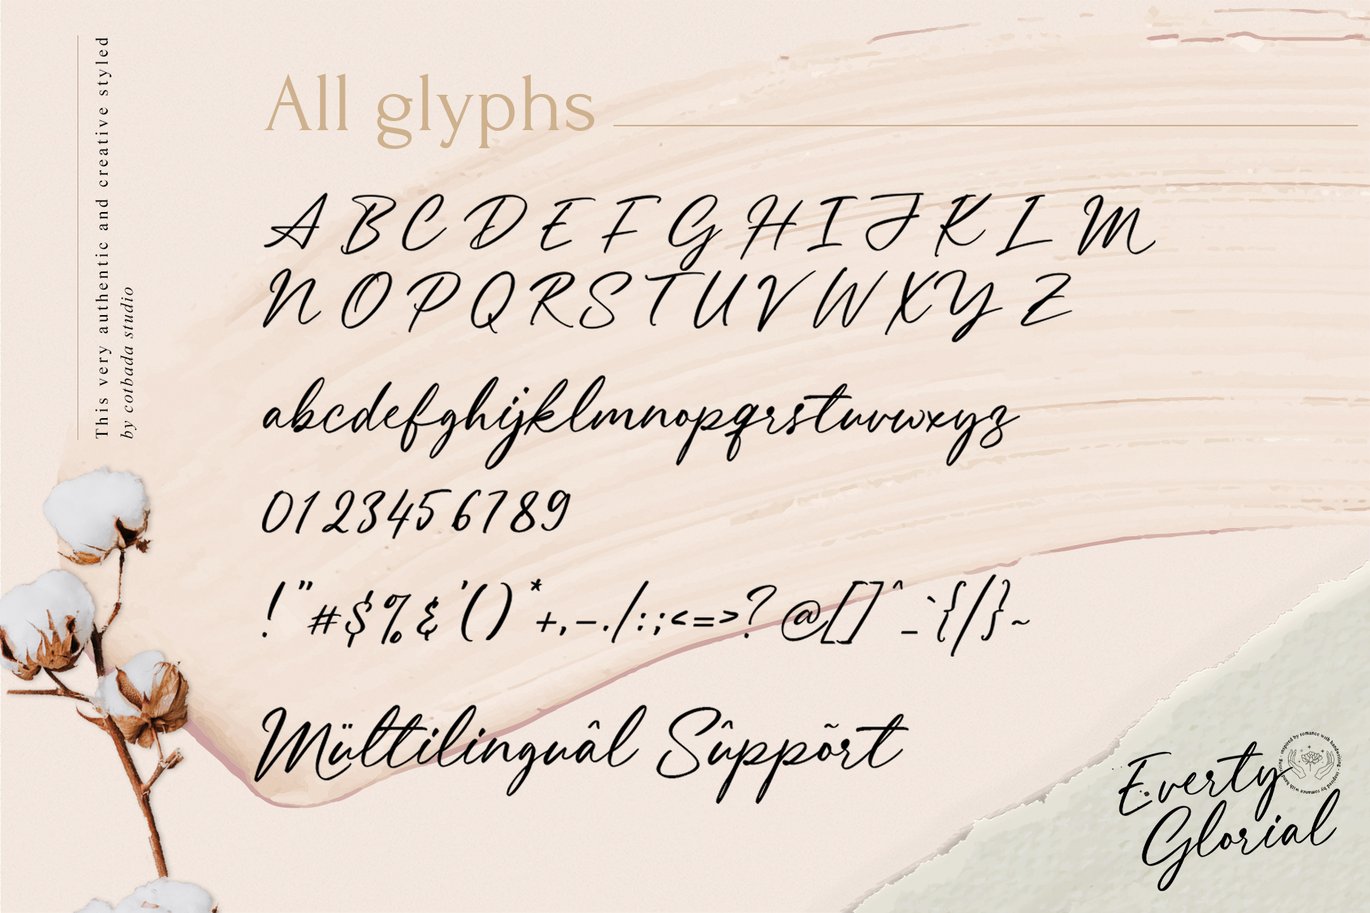 This very authentic and creative styled
by cotbada studio
All glyphs
A B C D E F G H I J K L M
N O P Q R S T U V W X Y Z
abcdefghijklmnopqrstuvwxyz
0123456789
! " # $ % & ' ( ) * + , - . / : ; < = > ? @ [ ] ^ _ ` { / } ~
Mültilinguâl Sûppõrt
Everty
Glorial